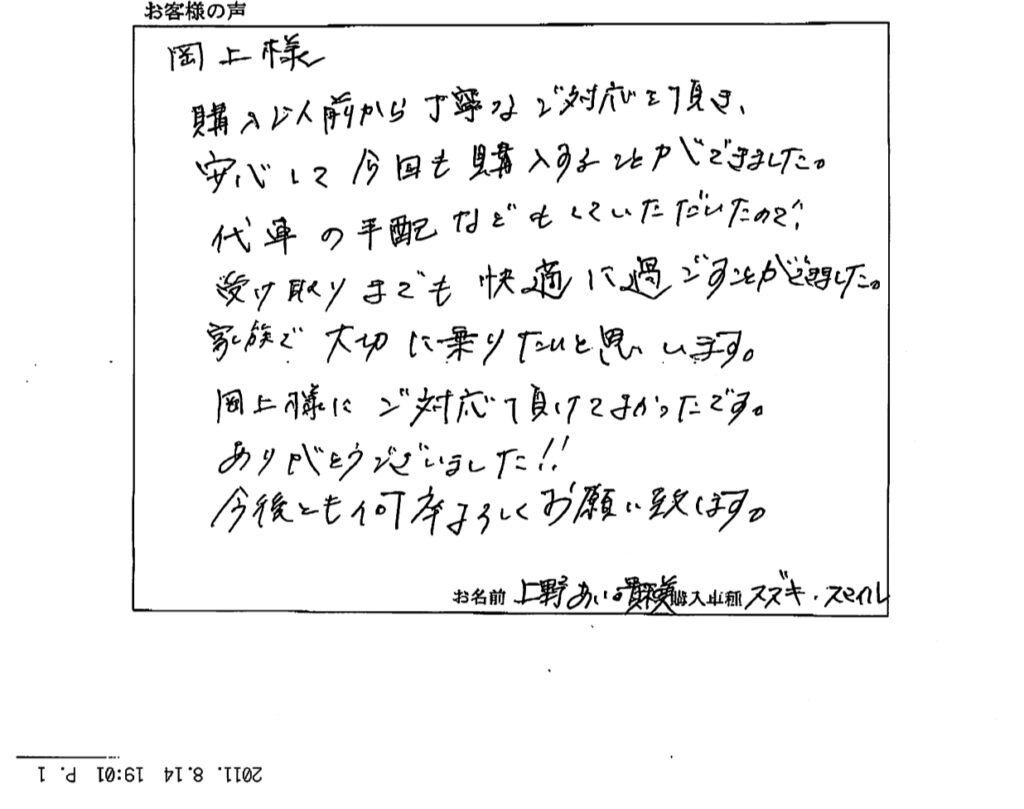 お客様の声
岡上様
購入以前から丁寧なご対応を頂き、
安心して今回も購入することができました。
代車の手配などもしていただいたので、
受け取りまでも快適に過ごすことができました。
家族で大切に乗りたいと思います。
岡上様にご対応頂けてよかったです。
ありがとうございました!!
今後とも何卒よろしくお願い致します。
お名前 上野あい 購入車種 スズキ・スマイル
2011. 8.14 19:01 P. 1